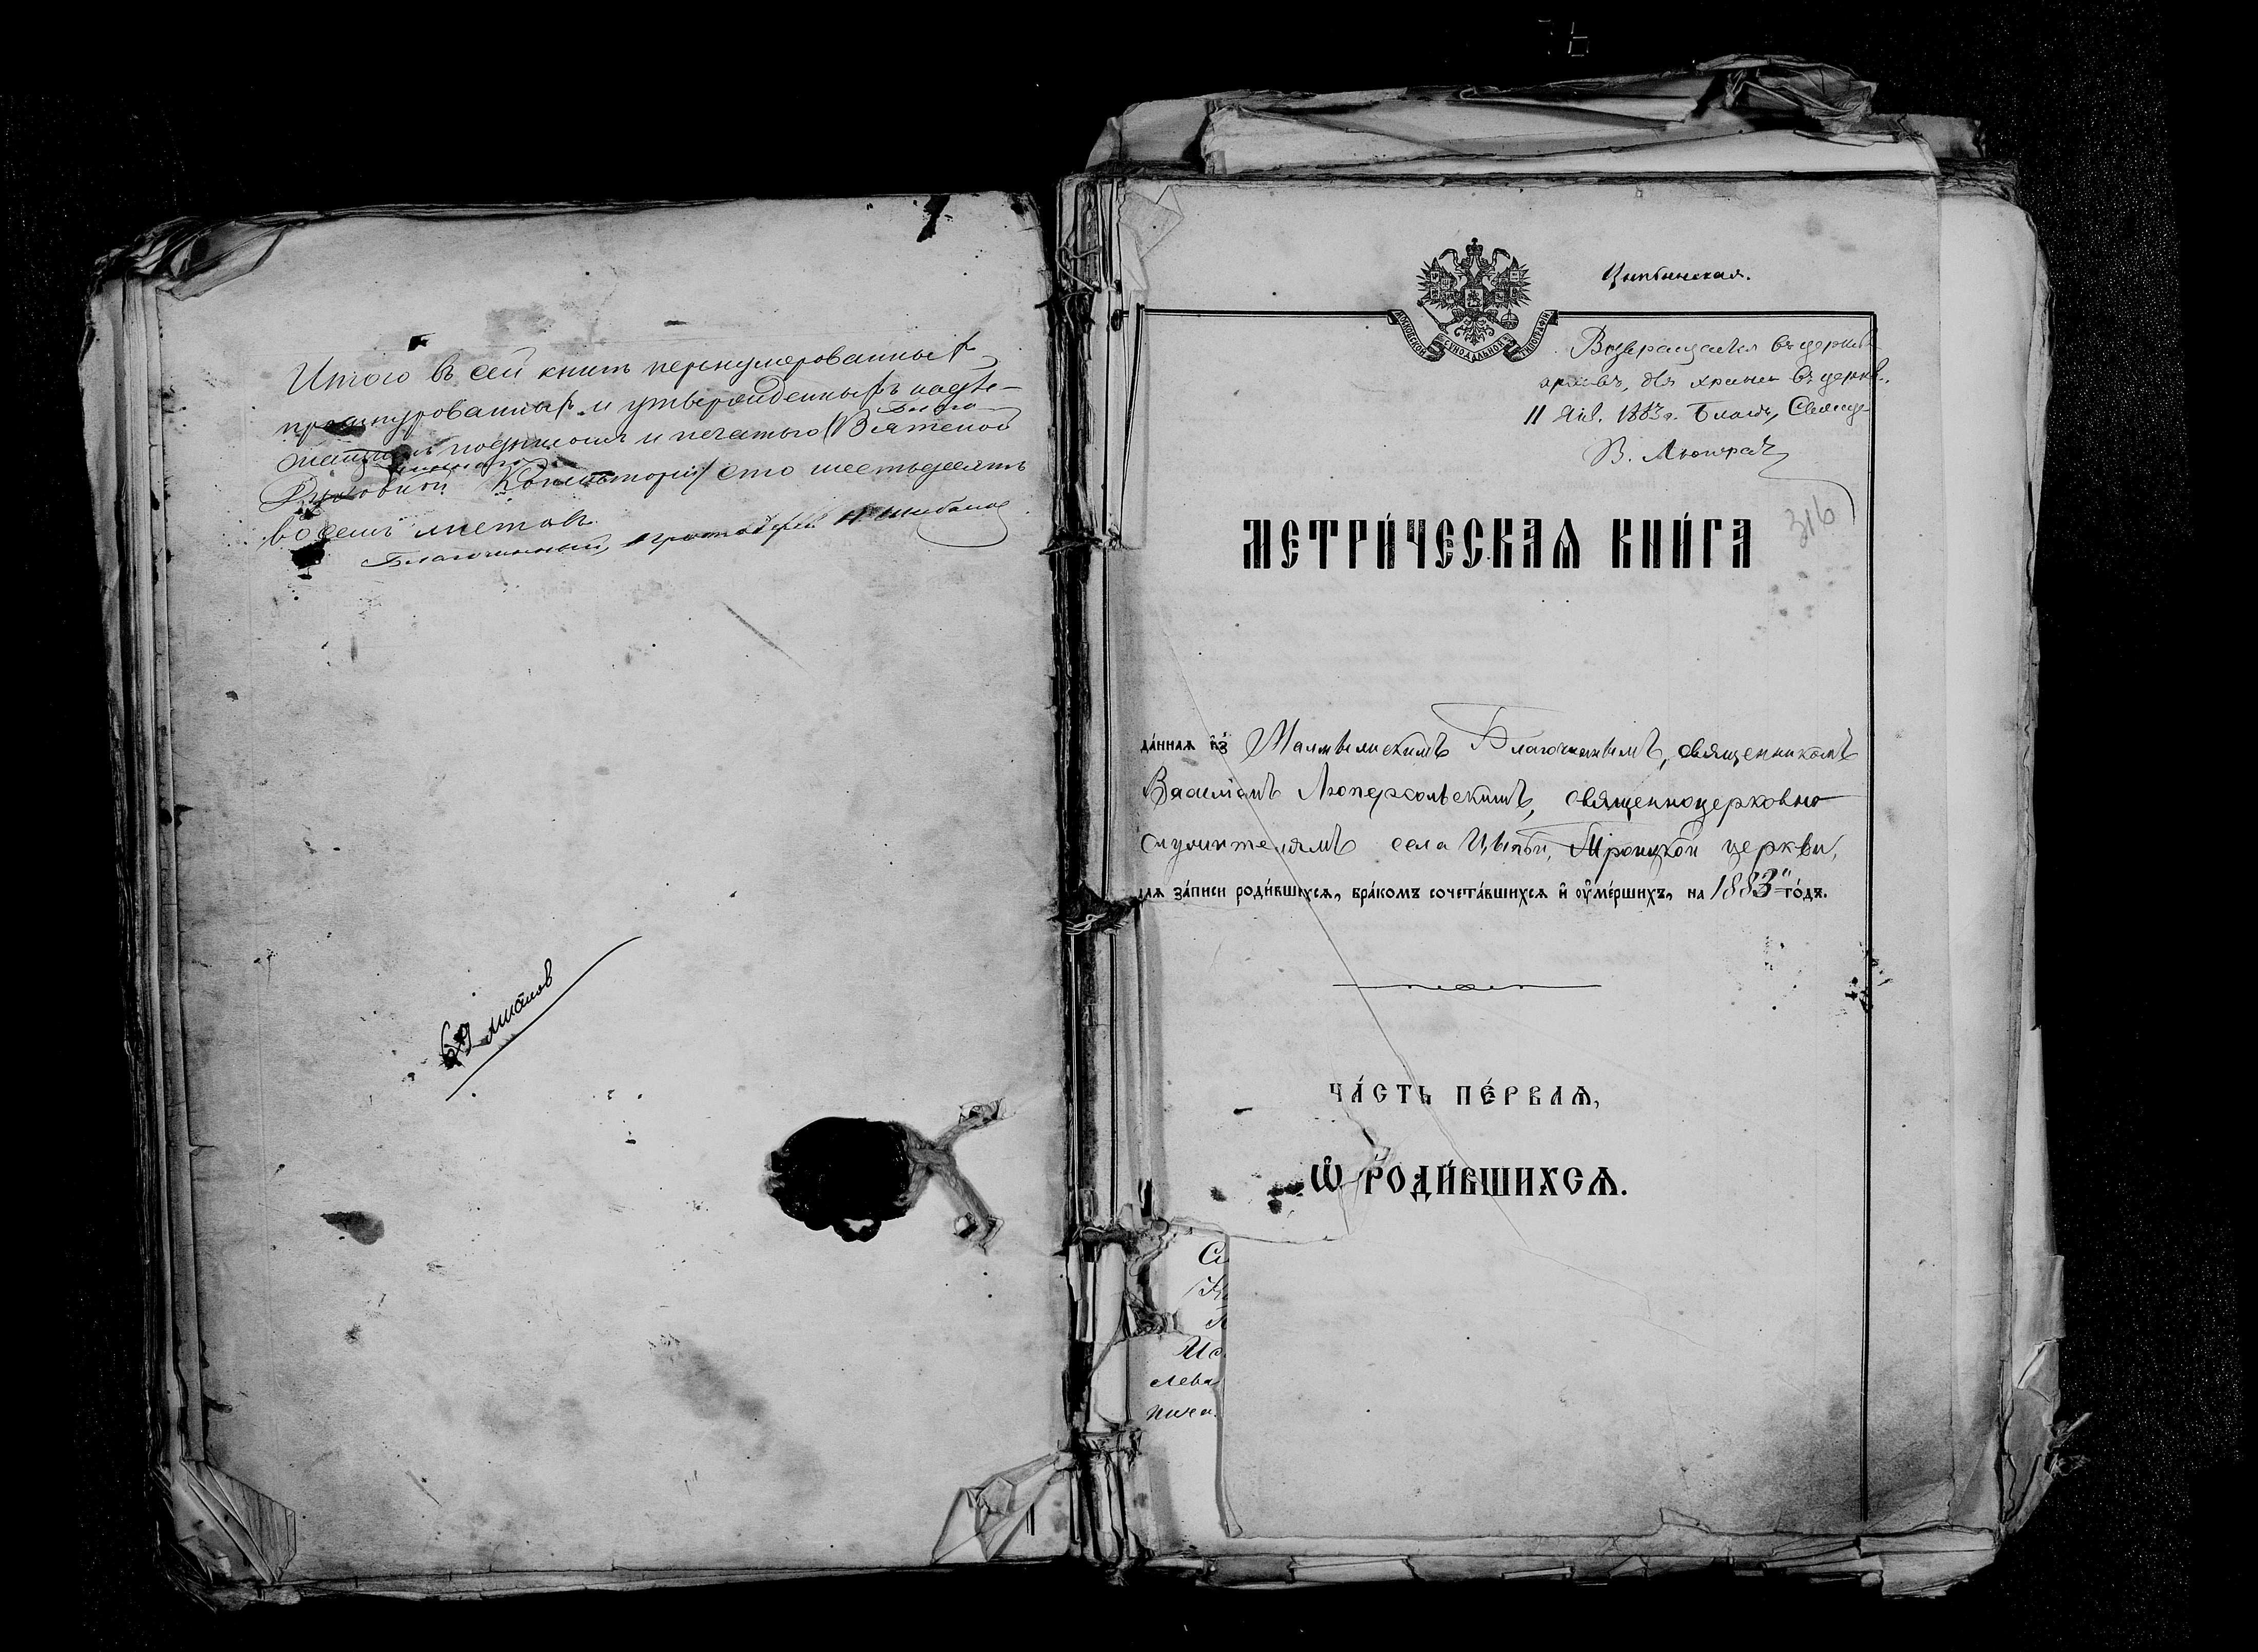 Итого в сей книге перенумерованных,
прошнурованных и утвержденных надле-
жащею подписью и печатью (Вятской
Благо
Духовной Консисторіи) сто шестьдесятъ
восемь листовъ.
Благочинный, протоіерей Н. Шубинъ
69 листов
Цыпьинская.
МОСКОВСКОЙ СѴНОДАЛЬНОЙ ТИПОГРАФІИ
Возвращается въ церков
архивъ, для хранен въ церкв.
11 Янв. 1883 г. Благоч, Свяще
В. Люперс
316
МЕТРИ́ЧЕСКАѦ КНИ́ГА
да́нная из̾ Малмыжскимъ Благочиннымъ, священникомъ
Василіемъ Люперсольскимъ, священноцерковно
служителямъ села Цыпьи, Троицкой церкви,
для за́писи роди́вшихся, бра́комъ сочета́вшихся и ᲂу҆ме́ршихъ, на 1883й го́дъ.
ЧА́СТЬ ПЕ́РВАѦ,
Ѡ҆ РОДИ́ВШИХСѦ.
Сл
Ив
Лева